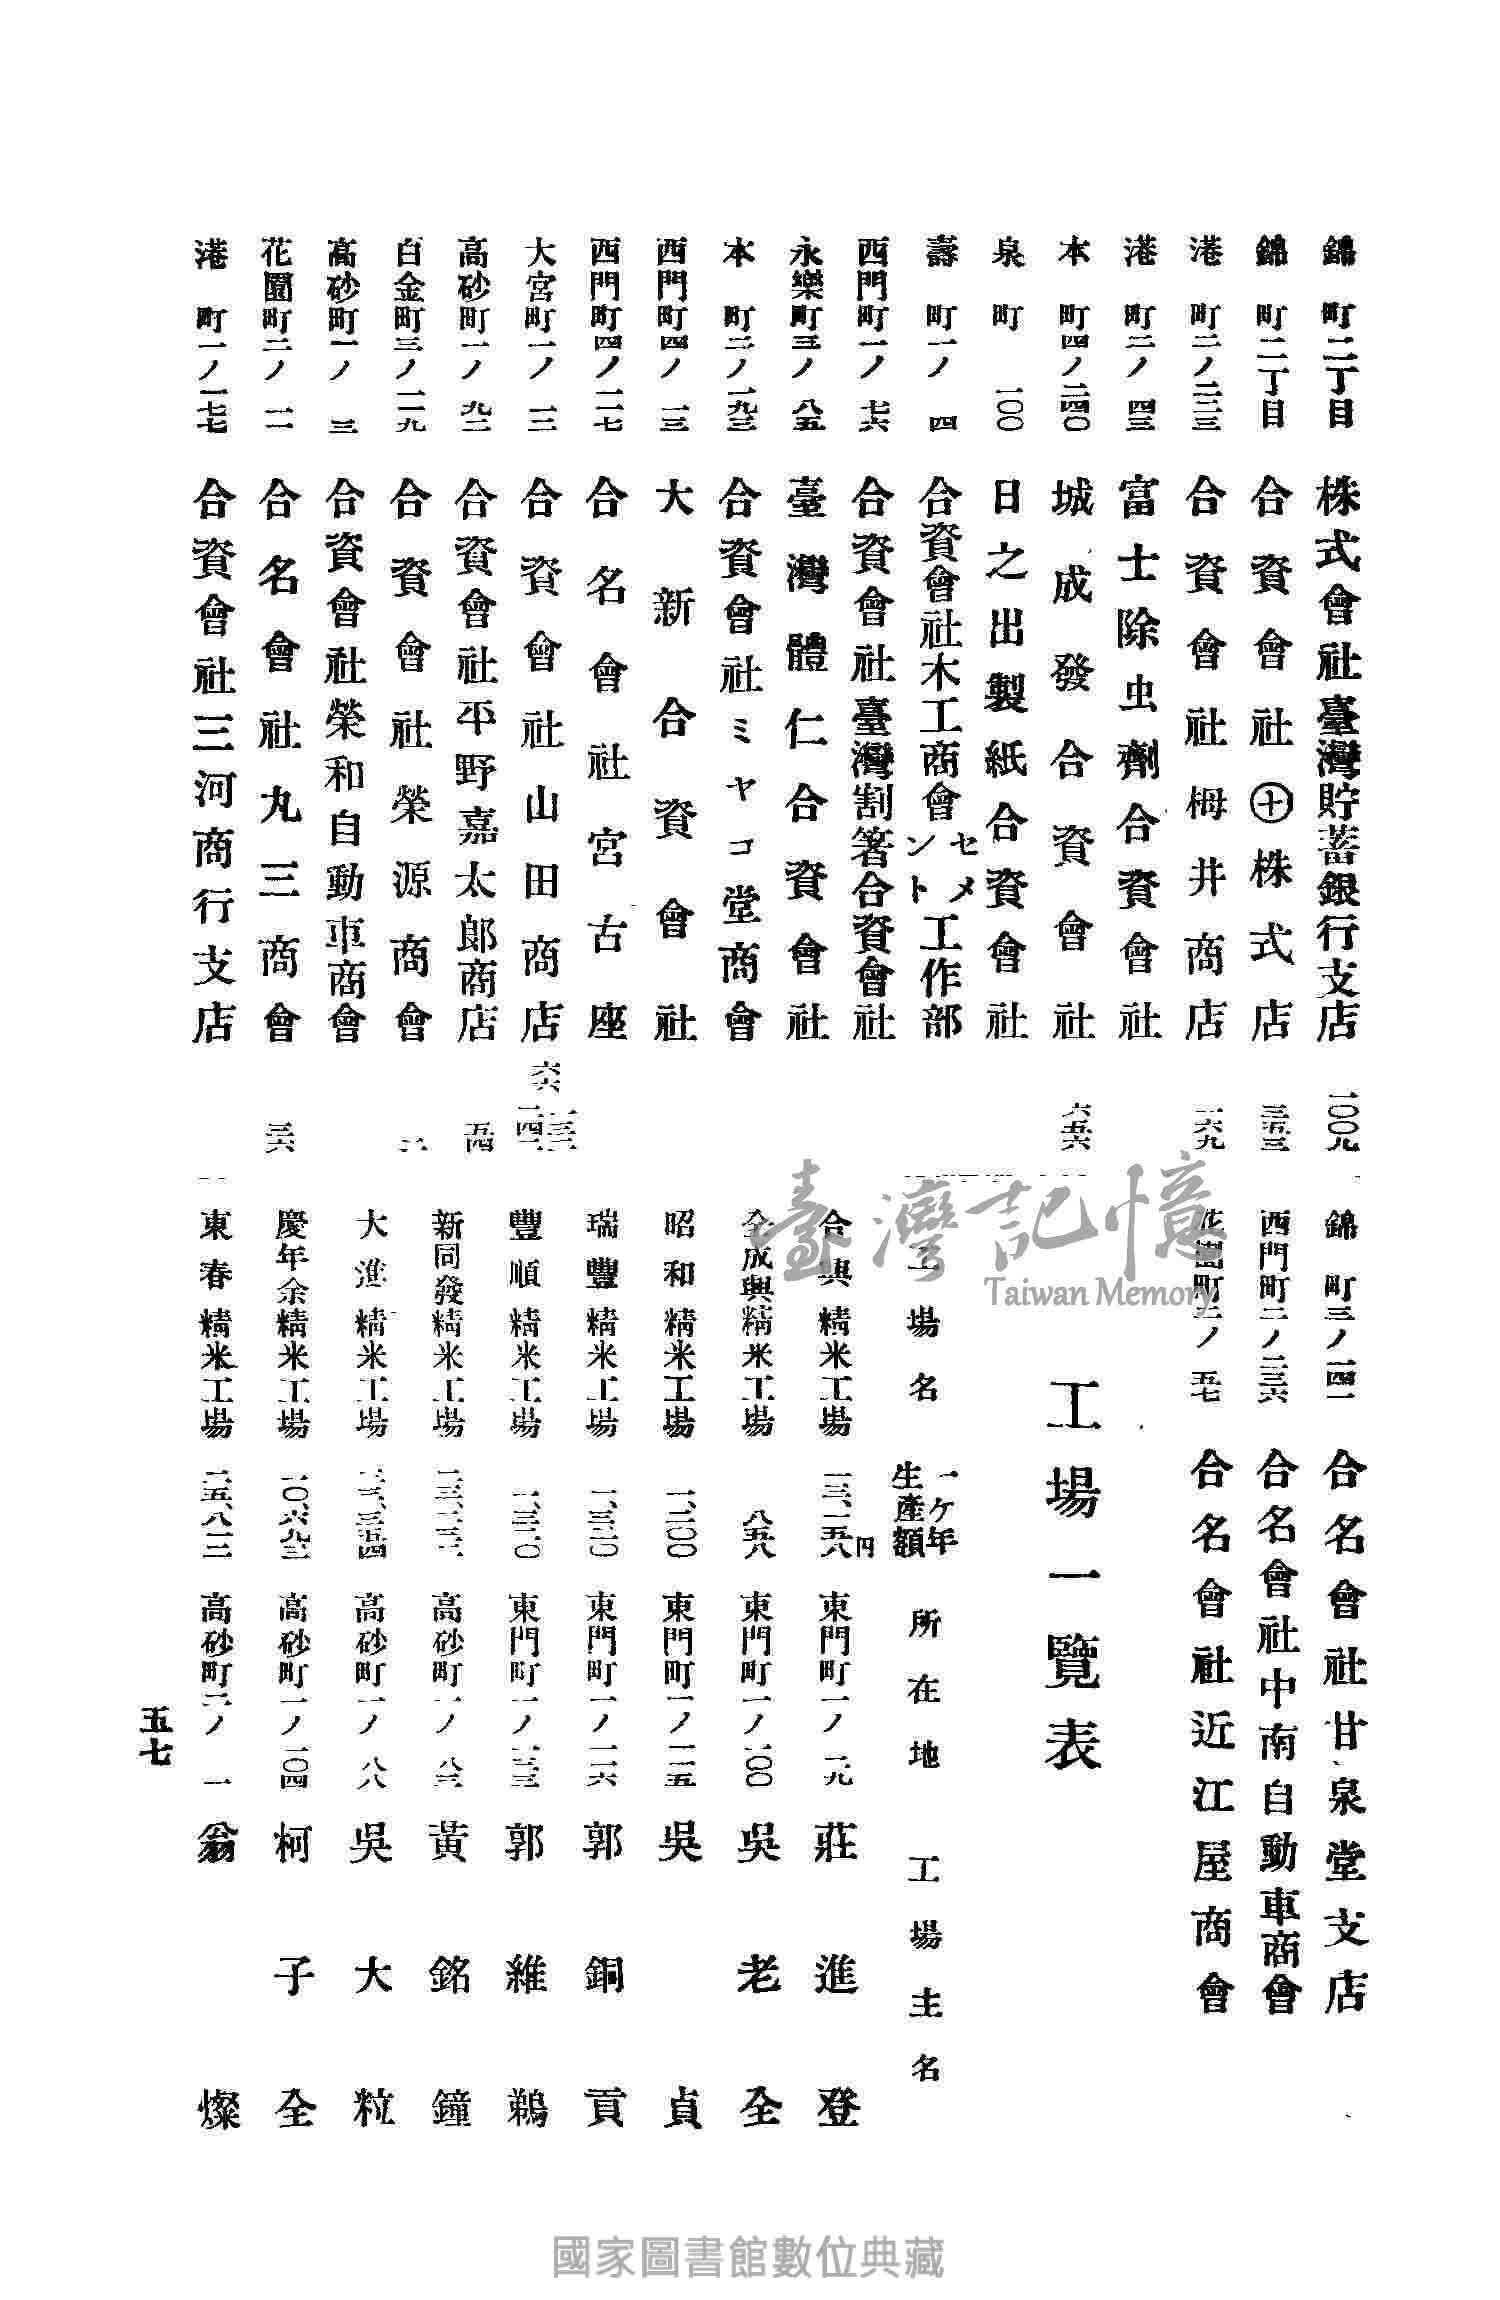 錦町二丁目 株式會社臺灣貯蓄銀行支店 一〇〇九
錦町二丁目 合資會社㊉株式店 三五三
港町二ノ二三三 合資會社栂井商店 一六九
港町二ノ四三 富士除虫劑合資會社
本町四ノ二四〇 城成發合資會社 六五六
泉町一〇〇 日之出製紙合資會社
壽町一ノ四 合資會社木工商會セメント工作部
西門町一ノ七六 合資會社臺灣割箸合資會社
永樂町三ノ八五 臺灣體仁合資會社
本町二ノ一九三 合資會社ミヤコ堂商會
西門町四ノ一三 大新合資會社
西門町四ノ一一七 合名會社宮古座
大宮町一ノ一二 合資會社山田商店
高砂町一ノ九二 合資會社平野嘉太郎商店 五四
白金町三ノ一一九 合資會社榮源商會 二
高砂町一ノ三 合資會社榮和自動車商會
花園町二ノ一一 合名會社丸三商會 三六
港町一ノ一七七 合資會社三河商行支店
錦町三ノ一四一 合名會社甘泉堂支店
西門町二ノ二三六 合名會社中南自動車商會
花園町二ノ五七 合名會社近江屋商會
工場一覽表
工場名 一ケ年生產額 所在地 工場主名
合興精米工場 一三、一五八円 東門町一ノ一九 莊進登
全成興精米工場 八五八 東門町一ノ一〇〇 吳老全
昭和精米工場 一、二〇〇 東門町一ノ一一五 吳貞
瑞豐精米工場 一、三二〇 東門町一ノ一一六 郭銅貢
豐順精米工場 一、三二〇 東門町一ノ一三三 郭維鵜
新同發精米工場 二三、二三二 高砂町一ノ八三 黃銘鐘
大進精米工場 高砂町一ノ八八 吳大粒
慶年余精米工場 一〇、六九三 高砂町一ノ一〇四 柯子全
東春精米工場 二五、八一二 高砂町二ノ一 翁燦
五七
臺灣記憶
Taiwan Memory
國家圖書館數位典藏